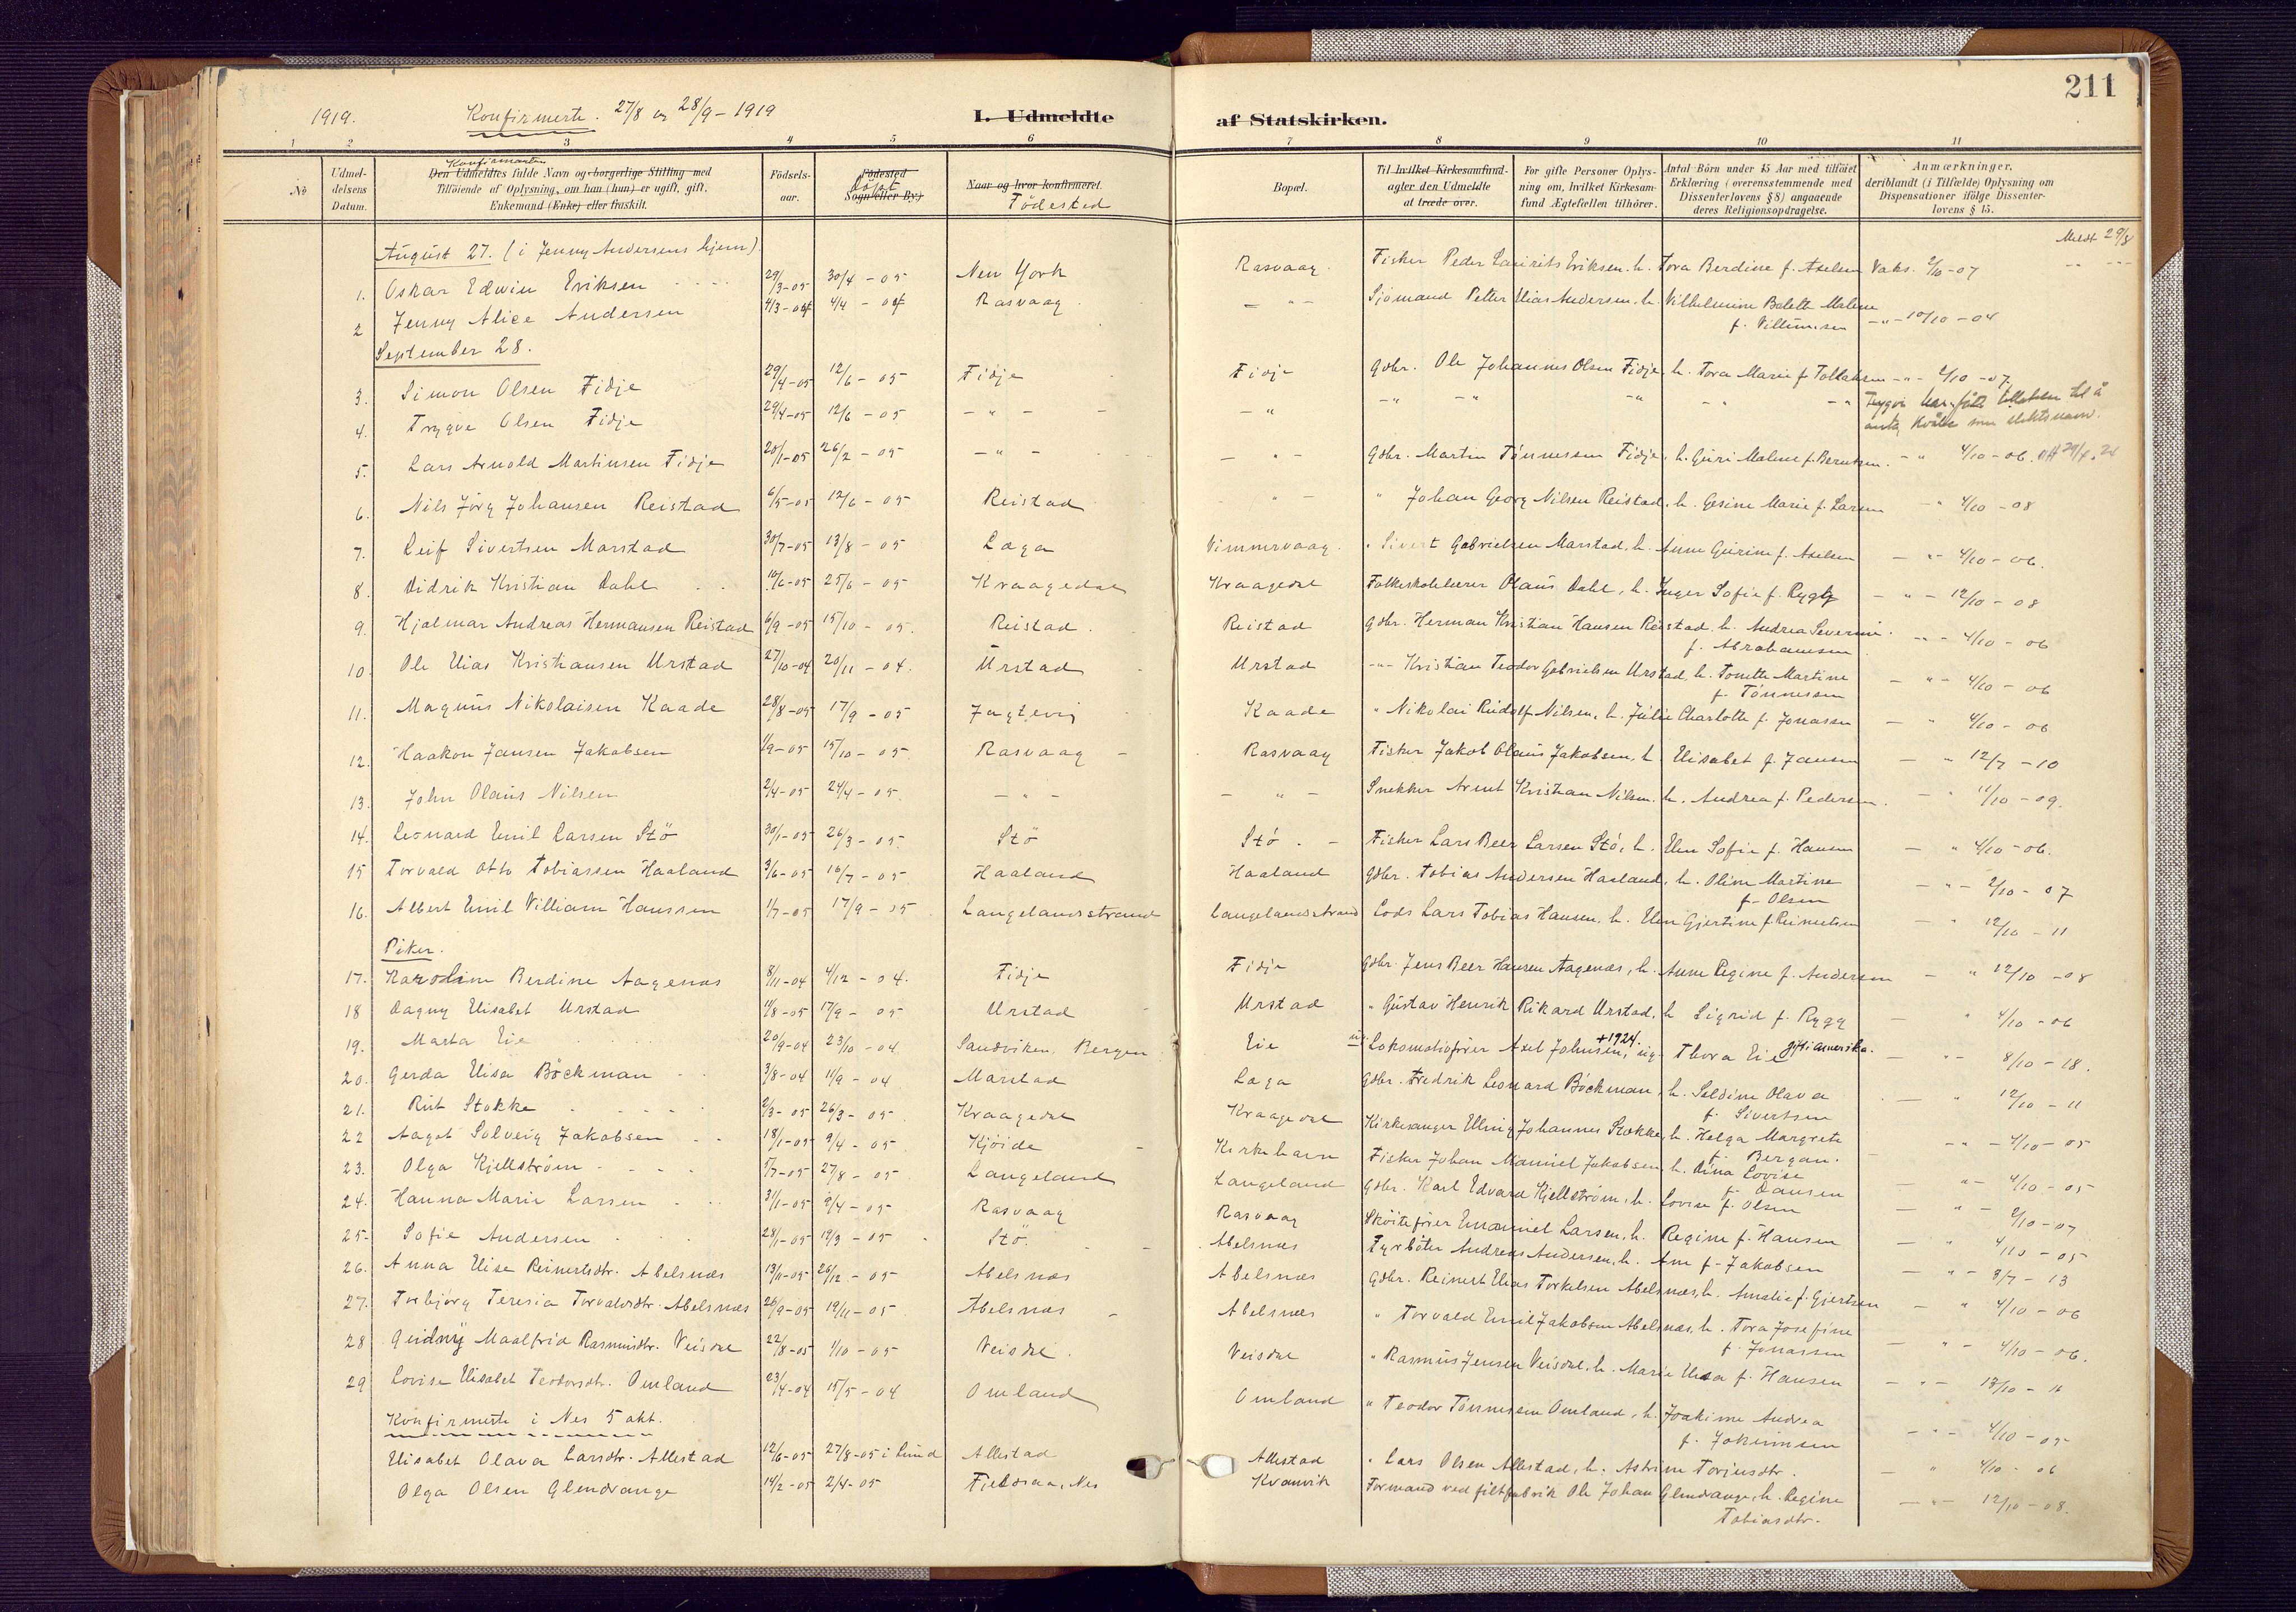 211
1919. Konfirmerte. 27/8 og 28/9 - 1919 I. Udmeldte af Statskirken.
1 2 3 4 5 6 7 8 9 10 11
No
Udmeldelsens Datum.
Konfirmanten
Den Udmeldtes fulde Navn og borgerlige Stilling med
Tilföiende af Oplysning, om han (hun) er ugift, gift,
Enkemand (Enke) eller fraskilt.
Födsels-
aar.
Födested
Döpt
Sogn (eller By)
Naar og hvor konfirmeret.
Födested
Bopæl.
Til hvilket Kirkesamfund-
agter den Udmeldte
at træde over.
For gifte Personer Oplys-
ning om, hvilket Kirkesam-
fund Ægtefællen tilhörer.
Antal Börn under 15 Aar med tilföiet
Erklæring (overensstemmende med
Dissenterlovens § 8) angaaende
deres Religionsopdragelse.
Anmærkninger,
deriblandt (i Tilfælde) Oplysning om
Dispensationer ifölge Dissenter-
lovens § 15.
August 27. (i Jenny Andersens hjem) Meldt 29/8
1. Oskar Edwin Eriksen 29/3-05 30/4 - 05 New York Rasvaag Fisker Peder Laurits Eriksen. h. Tora Berdine f. Axelsen Vaks. 2/10 -07
2 Jenny Alice Andersen 4/3-04 4/4 - 04 Rasvaag - " - Sjömand Petter Elias Andersen, h. Vilhelmine Bolette Malene
f. Villumsen - " - 10/10 - 04
September 28.
3. Simon Olsen Fidje 29/4-05 12/6 - 05 Fidje Fidje Gdbr. Ole Johannes Olsen Fidje, h. Tora Marie f. Tollaksen - " - 2/10 -07
4. Trygve Olsen Fidje 29/4-05 12/6 - 05 - " - - " -" -" -" -" -" Trygve har fått tillatelse til å
antg Kvåle som slektsnavn.
5. Lars Arnold Martinsen Fidje 20/1-05 26/2 - 05 - " - - " - Gdbr. Martin Tönnessen Fidje, h. Guri Malene f. Berntsen. - " 4/10 - 06.
6. Nils Jörg Johansen Reistad 6/5-05 12/6 - 05 Reistad " - " Johan Georg Nilsen Reistad, h. Gesine Marie f. Larsen - " 4/10 -08
7. Leif Sivertsen Marstad 30/7-05 13/8 - 05 Laga Vimmervaag. " Sivert Gabrielsen Marstad, h. Anne Gurine f. Axelsen - " - 4/10 - 06.
8. Didrik Kristian Dahl 10/6-05 25/6 - 05 Kraagedal Kraagedal Folkeskolelærer Olaus Dahl, h. Inger Sofie f. Rygg - " - 12/10 - 08
9. Hjalmar Andreas Hermansen Reistad 6/9-05 15/10 - 05. Reistad. Reistad Gdbr. Herman Kristian Hansen Reistad h. Andrea Severine
f. Abrahamsen - " - 4/10 - 06
10. Ole Elias Kristiansen Urstad 27/10-04 20/11 - 04. Urstad Urstad -"- Kristian Teodor Gabrielsen Urstad, h. Tonette Martine
f. Tönnessen - " - 4/10 - 06
11. Magnus Nikolaisen Kaade 28/8-05 17/9 - 05 Jagtevig Kaade " Nikolai Rudolf Nilsen, h. Julie Charlotte f. Jonassen - " 4/10 - 06
12. Haakon Jansen Jakobsen 1/9-05 15/10 - 05. Rasvaag Rasvaag Fisker Jakob Olaus Jakobsen, h. Elisabet f. Jansen - " 12/7 -10
13. John Olaus Nilsen 2/4-05 24/4 - 05. - " - - " - Snekker Arent Kristian Nilsen. h. Andrea f. Pedersen. - " 11/10 - 09.
14. Leonard Emil Larsen Stö 30/1-05 26/3 - 05. Stö Stö. Fisker Lars Beer Larsen Stö, h. Elen Sofie f. Hansen - " 4/10 -06.
15 Torvald Otto Tobiassen Haaland 3/6-05 16/7 - 05 Haaland Haaland Gdbr. Tobias Andersen Haaland, h. Oline Martine
f. Olsen - " - 2/10 - 07
16. Albert Emil Villiam Hanssen 1/7-05 17/9 - 05 Langelandsstrand Langelandsstrand Lods Lars Tobias Hansen, h. Elen Gjertine f. Reinertsen - " 12/10 - 11
Piker.
17. Karoline Berdine Aagenæs 8/11-04 4/12 - 04. Fidje Fidje Gdbr. Jens Beer Hansen Aagenæs, h. Anne Regine f. Andersen - " 22/10 -08
18 Dagny Elisabet Urstad 11/8-05 17/9 - 05 Urstad Urstad " Gustav Henrik Rikard Urstad, h Sigrid f. Rygg - " 4/10 -06
19. Marta Eie 20/9-04 23/10 - 04. Sandviken, Bergen Eie ug Lokomotivförer Axel Johnsen, +1924. ug. Thora Eie gift i Amerika. - " - 8/10 - 18.
20. Gerda Elisa Böckman 3/8-04 11/9 - 04 Marstad Laga Gdbr. Fredrik Leonard Böckman, h. Seldine Olava
f. Sivertsen - " 12/10 - 11
21. Rut Stokke 2/3-05 26/3 - 05. Kraagedal Kraagedal Kirkesanger Elling Johannes Stokke, h. Helga Margrete
f. Bergan. - " - 4/10 - 05
22 Aagot Solveig Jakobsen 18/1-05 9/4 - 05. Kjöide Kirkehavn Fisker Johan Manuel Jakobsen, h. Dina Lovise
f. Jansen - "- 4/10 - 05
23. Olga Kjellström 5/7-05 27/8 - 05 Langeland Langeland Gdbr. Karl Edvard Kjellström, h. Lovise f. Olsen - " - 2/10 -07
24. Hanna Marie Larsen 31/1-05 9/4 - 05 Rasvaag Rasvaag Sköiteförer Emanuel Larsen, h. Regine f. Hansen - " 4/10 - 05
25- Sofie Andersen 28/1-05 19/3 - 05 Stö. Abelsnæs Fyrböter Andreas Andersen, h. Ane f. Jakobsen - " - 8/7 - 13
26. Anna Elise Reinertsdtr. Abelsnæs 13/11-05 26/12 - 05 Abelsnæs Abelsnæs Gdbr. Reinert Elias Torkelsen Abelsnæs, h. Amalie f. Gjertsen - " 4/10 - 06
27. Torbjörg Teresia Torvaldsdtr. Abelsnæs 26/9-05 19/11 - 05 Abelsnæs Abelsnæs " Torvald Emil Jakobsen Abelsnæs, h. Tora Josefine
f. Jonassen - " - 4/10 - 06.
28 Gudny Maalfrid Rasmusdtr. Veisdal 22/8-05 1/10 - 05 Veisdal Veisdal " Rasmus Jensen Veisdal, h. Marie Elisa f. Hansen - " - 13/10 - 11
29 Lovise Elisabet Teodorsdtr. Omland 23/4-04 15/5 - 04 Omland Omland " Teodor Tönnessen Omland, h. Joakime Andrea
f. Jokumsen - " - 4/10 - 05
Konfirmerte i Nes 5 okt.
Elisabet Olava Larsdtr. Allestad 12/6-05 27/8-05 i Lund Allestad Allestad " Lars Olsen Allestad, h. Astrine Torjusdtr. - " 4/10 - 06
Olga Olsen Glendrange 14/2-05 2/4-05 Fjeldsaa, Nes Kvanvik Formand ved filtfabrik Ole Johan Glendrange, h. Regine
Tobiasdtr. - " - 12/10 -08.